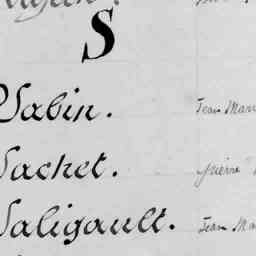 S
Sabin. Jean Mari
Sachet. Pierre
Saligault. Jean Ma